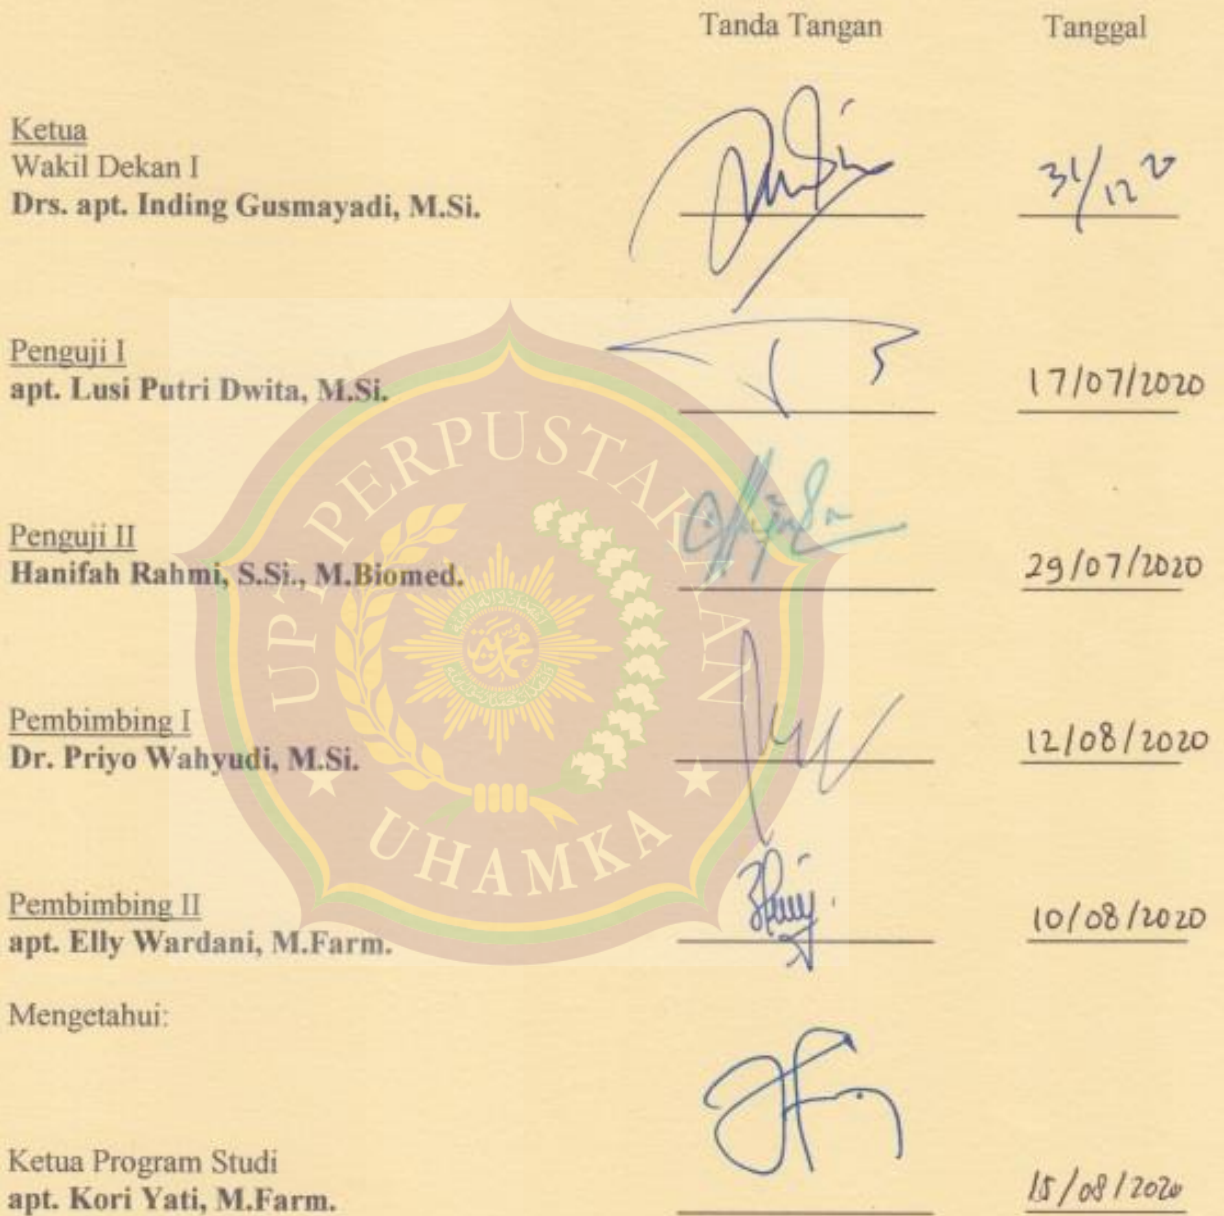 Tanda Tangan Tanggal
Ketua
Wakil Dekan I
Drs. apt. Inding Gusmayadi, M.Si. 31/12 20
Penguji I
apt. Lusi Putri Dwita, M.Si. 17/07/2020
Penguji II
Hanifah Rahmi, S.Si., M.Biomed. 29/07/2020
Pembimbing I
Dr. Priyo Wahyudi, M.Si. 12/08/2020
Pembimbing II
apt. Elly Wardani, M.Farm. 10/08/2020
Mengetahui:
Ketua Program Studi
apt. Kori Yati, M.Farm. 15/08/2020
UPT PERPUSTAKAAN
UHAMKA